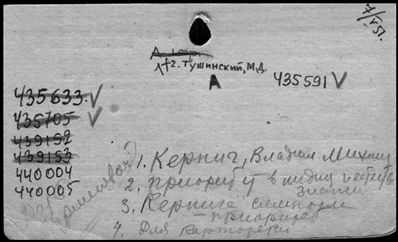 7/VI 51.
1+2. Тушинский, М.Д.
А
435591 ✓
435633 ✓
435705 ✓
439152
439153
440004
440005
1. Керниг, Владим. Михаил
2. приоритет в медиц.
3. Кернига симптом
приоритет
4. Для картотеки